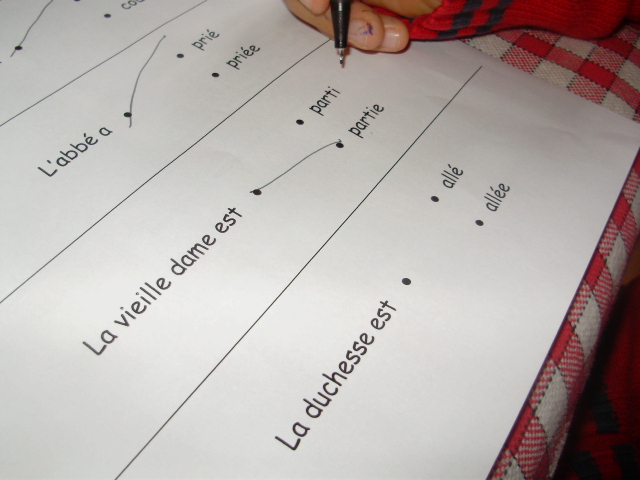 L'abbé a
prié
priée
La vieille dame est
parti
partie
La duchesse est
allé
allée